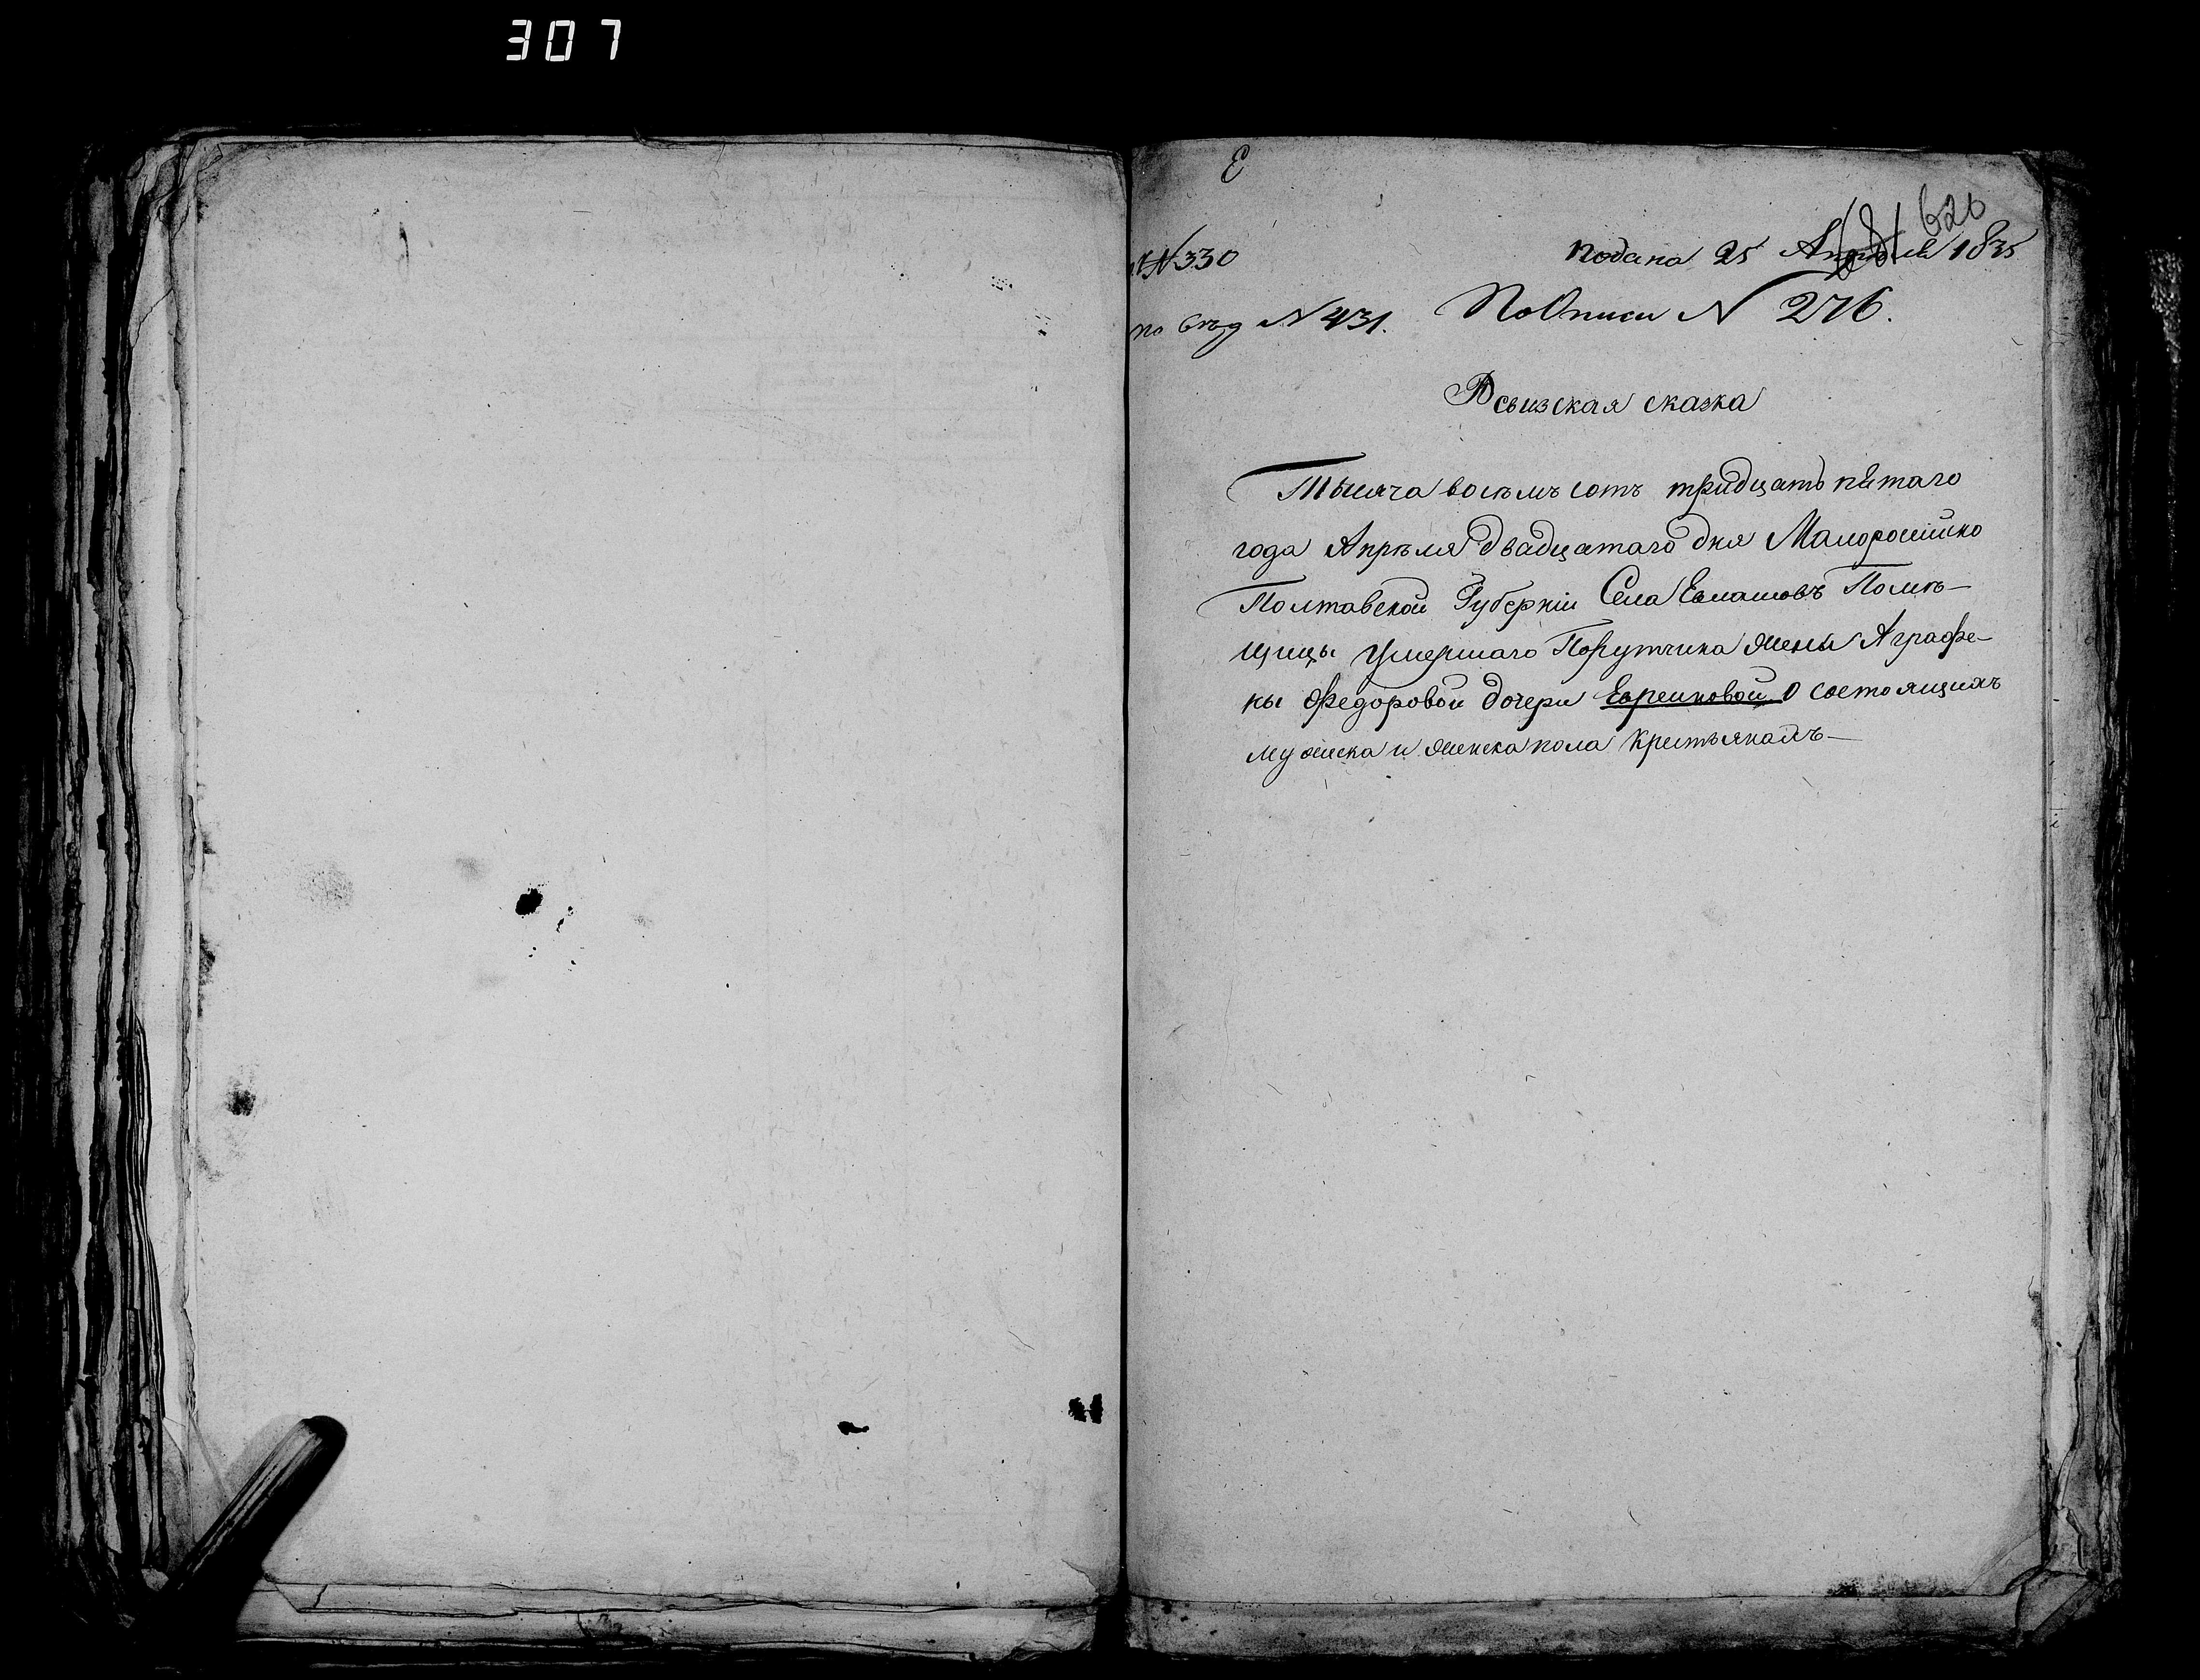 307
Е
620
№ 330
подана 25 Апреля 1835
по № 431.
По Описи № 276.
Ревизская сказка
Тысяча восемъ сотъ тридцать пятаго
года Апреля двадцатаго дня Малоросийско
Полтавской Губерніи Села Помѣ-
щицы умершаго Порутчика жены Аграфе-
ны Федоровой дочери Евреиновой о состоящихъ
мужска и женска пола крестьянахъ